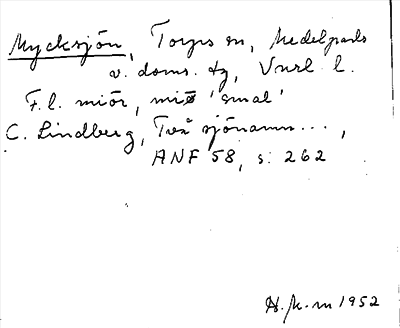 Mycksjön, Torps sn, Medelpads
v. doms. tg, Vnrl. l.
F.l. miór, mió 'smal'
C. Lindberg, Två sjönamn...,
ANF 58, s. 262
H. K-m 1952